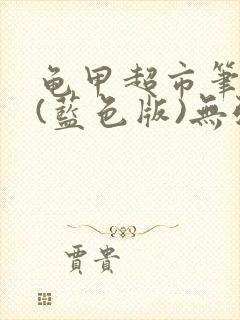 龟甲超市筆
(藍色版)無
賈貴